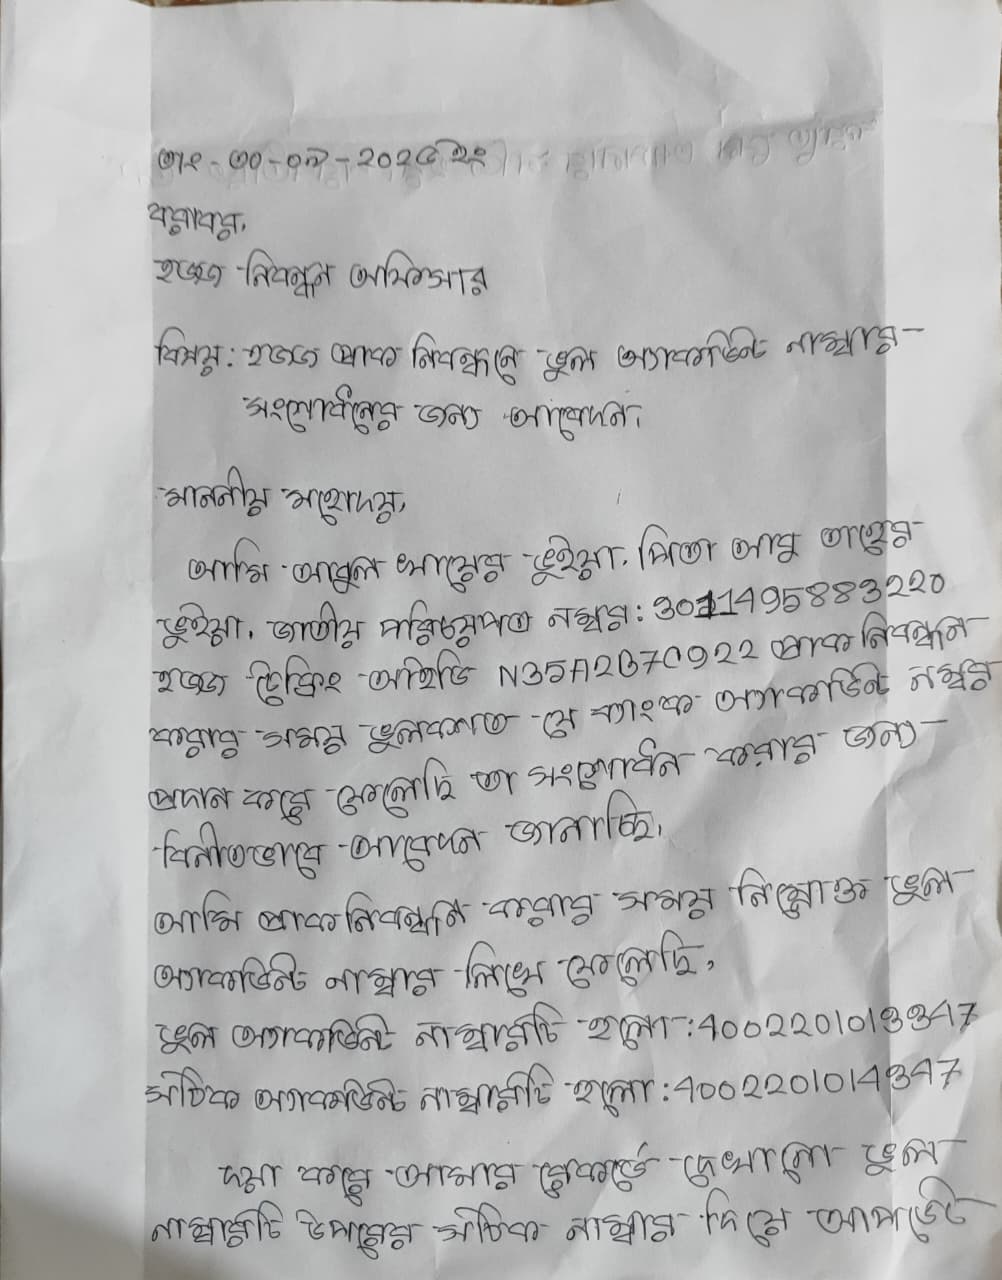 তাং - ৩০-০৯-২০২৫ ইং
বরাবর,
হজ্জ নিবন্ধন অফিসার
বিষয়: হজ্জ প্রাক নিবন্ধনে ভুল অ্যাকাউন্ট নাম্বার
সংশোধনের জন্য আবেদন।
মাননীয় মহোদয়,
আমি আবুল খায়ের ভুইয়া, পিতা আবু তাহের
ভুইয়া, জাতীয় পরিচয়পত্র নম্বর: 3011495883220
হজ্জ ট্রেকিং আইডি N35A2B70922 প্রাক নিবন্ধন
করার সময় ভুলবশত যে ব্যাংক অ্যাকাউন্ট নম্বর
প্রদান করে ফেলেছি তা সংশোধন করার জন্য
বিনীতভাবে আবেদন জানাচ্ছি,
আমি প্রাক নিবন্ধন করার সময় নিম্নোক্ত ভুল
অ্যাকাউন্ট নাম্বার লিখে ফেলেছি,
ভুল অ্যাকাউন্ট নাম্বারটি হলো: 4002201013347
সঠিক অ্যাকাউন্ট নাম্বারটি হলো: 4002201014347
দয়া করে আমার রেকর্ডে দেখানো ভুল
নাম্বারটি উপরের সঠিক নাম্বার দিয়ে আপডেট